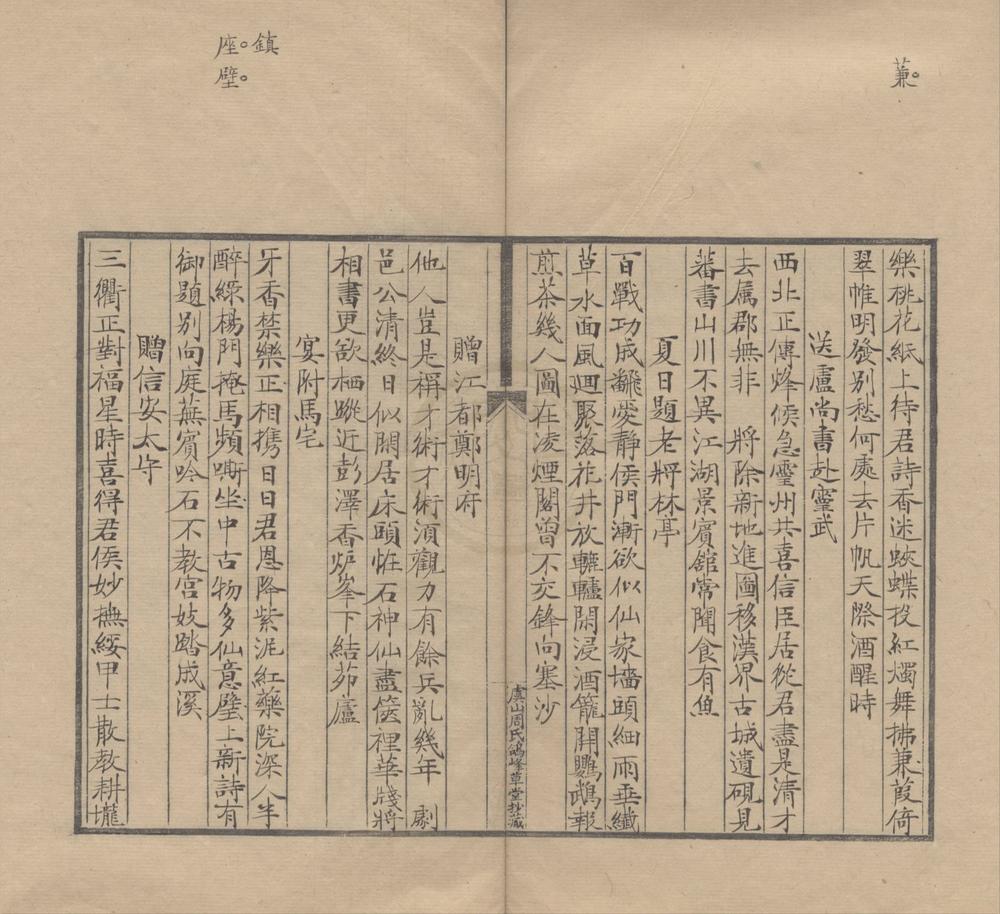 蒹
樂桃花紙上待君詩香迷蛺蝶投紅燭舞拂蒹葭倚
翠帷明發別愁何處去片帆天際酒醒時
送盧尚書赴靈武
西北正傳烽候急靈州共喜信臣居從君盡是清才
去属郡無非　將除新地進圖移漢界古城遺硯見
蕃書山川不異江湖景賓舘常聞食有魚
夏日題老將林亭
百戰功成飜愛靜侯門漸欲似仙家墻頭細雨垂纖
草水面風廻聚落花井放轆轤閑浸酒籠開鸚鵡報
煎茶幾人圖在凌煙閣曾不交鋒向塞沙
虞山周氏鴿峰草堂抄藏
鎮
座
壁
贈江都鄭明府
他人豈是稱才術才術湏觀力有餘兵亂幾年　劇
邑公清終日似閑居床頭恠石神仙畫篋裡華牋將
相書更欲栖蹤近彭澤香炉峯下結茆廬
宴附馬宅
牙香禁樂正相携日日君恩降紫泥紅藥院深人半
醉緑楊門掩馬頻嘶坐中古物多仙意璧上新詩有
御題别向庭蕪賓吟石不教宫妓踏成溪
贈信安太守
三衢正對福星時喜得君侯妙撫綏甲士散教耕壠